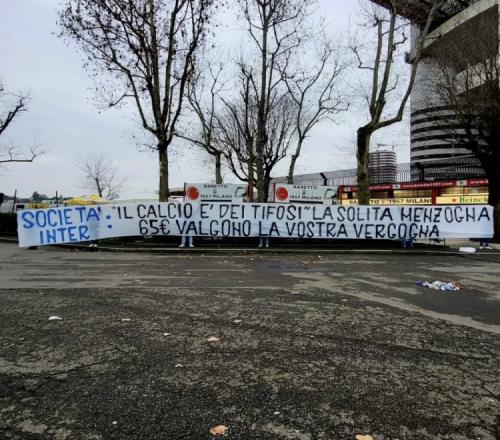 BARETTO
1957 MILANO
BARETTO
1957 MILANO
SOCIETA' INTER : "IL CALCIO E' DEI TIFOSI" LA SOLITA MENZOGNA
65€ VALGONO LA VOSTRA VERGOGNA
1957 MILANO
Heineken